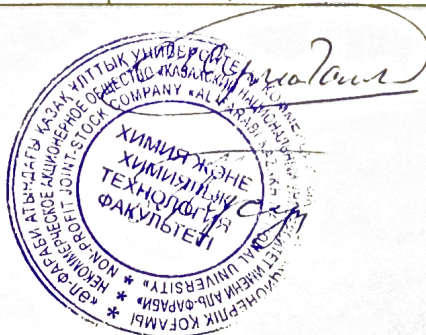 «ӘЛ-ФАРАБИ АТЫНДАҒЫ ҚАЗАҚ ҰЛТТЫҚ УНИВЕРСИТЕТІ» КОММЕ
ЦИОНЕРЛІК ҚОҒАМЫ
НЕКОММЕРЧЕСКОЕ АКЦИОНЕРНОЕ ОБЩЕСТВО «КАЗАХСКИЙ НАЦИОНАЛЬНЫЙ
ИТЕТ ИМЕНИ АЛЬ-ФАРАБИ»
NON-PROFIT JOINT-STOCK COMPANY «AL-FARABI KAZAKH
NAL UNIVERSITY»
ХИМИЯ ЖӘНЕ
ХИМИЯЛЫҚ
ТЕХНОЛОГИЯ
ФАКУЛЬТЕТІ